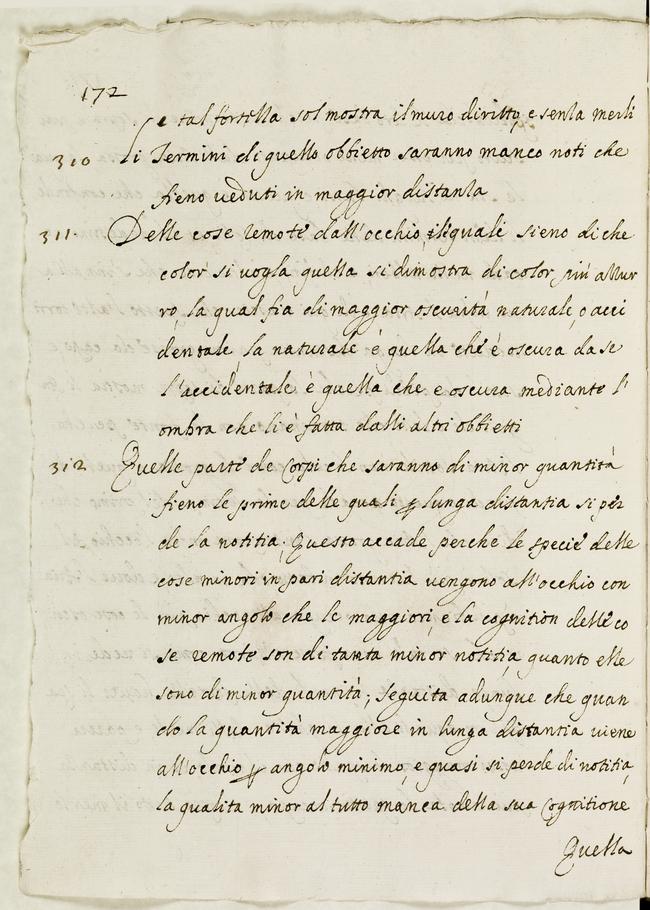 172
e tal fortezza sol mostra il muro diritto, e senza merli
310 Li Termini di quello obbietto saranno manco noti che
fieno veduti in maggior distanza
311. Delle cose remote dall'occhio, quali sieno di che
color si vogla quella si dimostra di color più azzur
ro, la qual fia di maggior oscurità naturale, o acci
dentale, la naturale è quella che è oscura da se
l'accidentale è quella che e oscura mediante l'
ombra che li è fatta dalli altri obbietti
312 Quelle parte de Corpi che saranno di minor quantità
fieno le prime delle quali p lunga distantia si per
de la notitia; Questo accade perche le specie delle
cose minori in pari distantia vengono all'occhio con
minor angolo che le maggiori, e la cognition delle co
se remote son di tanta minor notitia, quanto elle
sono di minor quantità; seguita adunque che quan
do la quantità maggiore in lunga distantia viene
all'occhio p angolo minimo, e quasi si perde di notitia,
la qualita minor al tutto manca della sua Cognitione
Quella